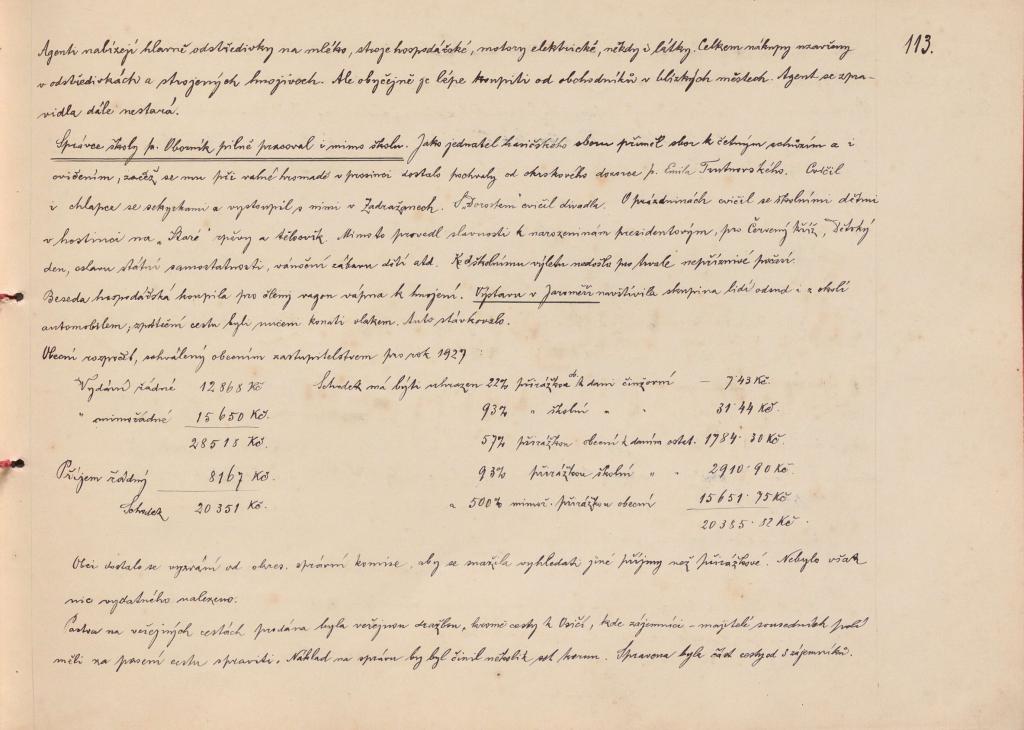 113.
Agenti nabízejí hlavně odstředivky na mléko, stroje hospodářské, motory elektrické, někdy i látky. Celkem nákupy uzavřeny
v odstředivkách a strojených hnojivech. Ale obyčejně je lépe koupiti od obchodníků v blízkých městech. Agent se zpra-
vidla dále nestará.
Správce školy p. Oborník pilně pracoval i mimo školu. Jako jednatel hasičského sboru přiměl sbor k četným schůzím a i
cvičením, začež se mu při valné hromadě v prosinci dostalo pochvaly od okrskového dozorce p. Emila Trutnovského. Cvičil
i chlapce se sekyrkami a vystoupil s nimi v Zadražanech. S "Dorostem" cvičil divadla. O prázdninách cvičil se školními dětmi
v hostinci na "Staré" zpěvy a tělocvik. Mimoto provedl slavnosti k narozeninám presidentovým, pro Červený kříž, Dětský
den, oslavu státní samostatnosti, vánoční zábavu dětí atd. Ke školnímu výletu nedošlo pro trvale nepříznivé počasí.
Beseda hospodářská koupila pro členy vagon vápna k hnojení. Výstavu v Jaroměři navštívila skupina lidí odsud i z okolí
automobilem, zpáteční cestu byli nuceni konati vlakem. Auto stávkovalo.
Obecní rozpočet, schválený obecním zastupitelstvem pro rok 1927:
Vydání řádné 12868 Kč Schodek má býti uhrazen 22% přirážkou k dani činžovní — 7·43 Kč.
" mimořádné 15650 Kč. 93% " školní " " 31·44 Kč.
28518 Kč. 57% přirážkou obecní k daním ostat. 1784·30 Kč.
Příjem řádný 8167 Kč. 93% přirážkou školní " " 2910·90 Kč.
Schodek 20351 Kč. a 500% mimoř. přirážkou obecní 15651·75 Kč
20385·82 Kč.
Obci dostalo se vyzvání od okres. správní komise, aby se snažila vyhledati jiné příjmy než přirážkové. Nebylo však
nic vydatného nalezeno.
Pastva na veřejných cestách prodána byla veřejnou dražbou, kromě cesty k Osičí, kde zájemníci - majitelé sousedních polí
měli za pasení cestu spraviti. Náklad na správu by byl činil několik set korun. Spravena byla část cesty od 3 zájemníků.